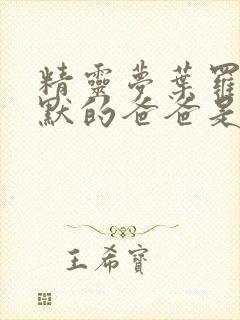 精靈夢葉羅
默的爸爸是
王希寶